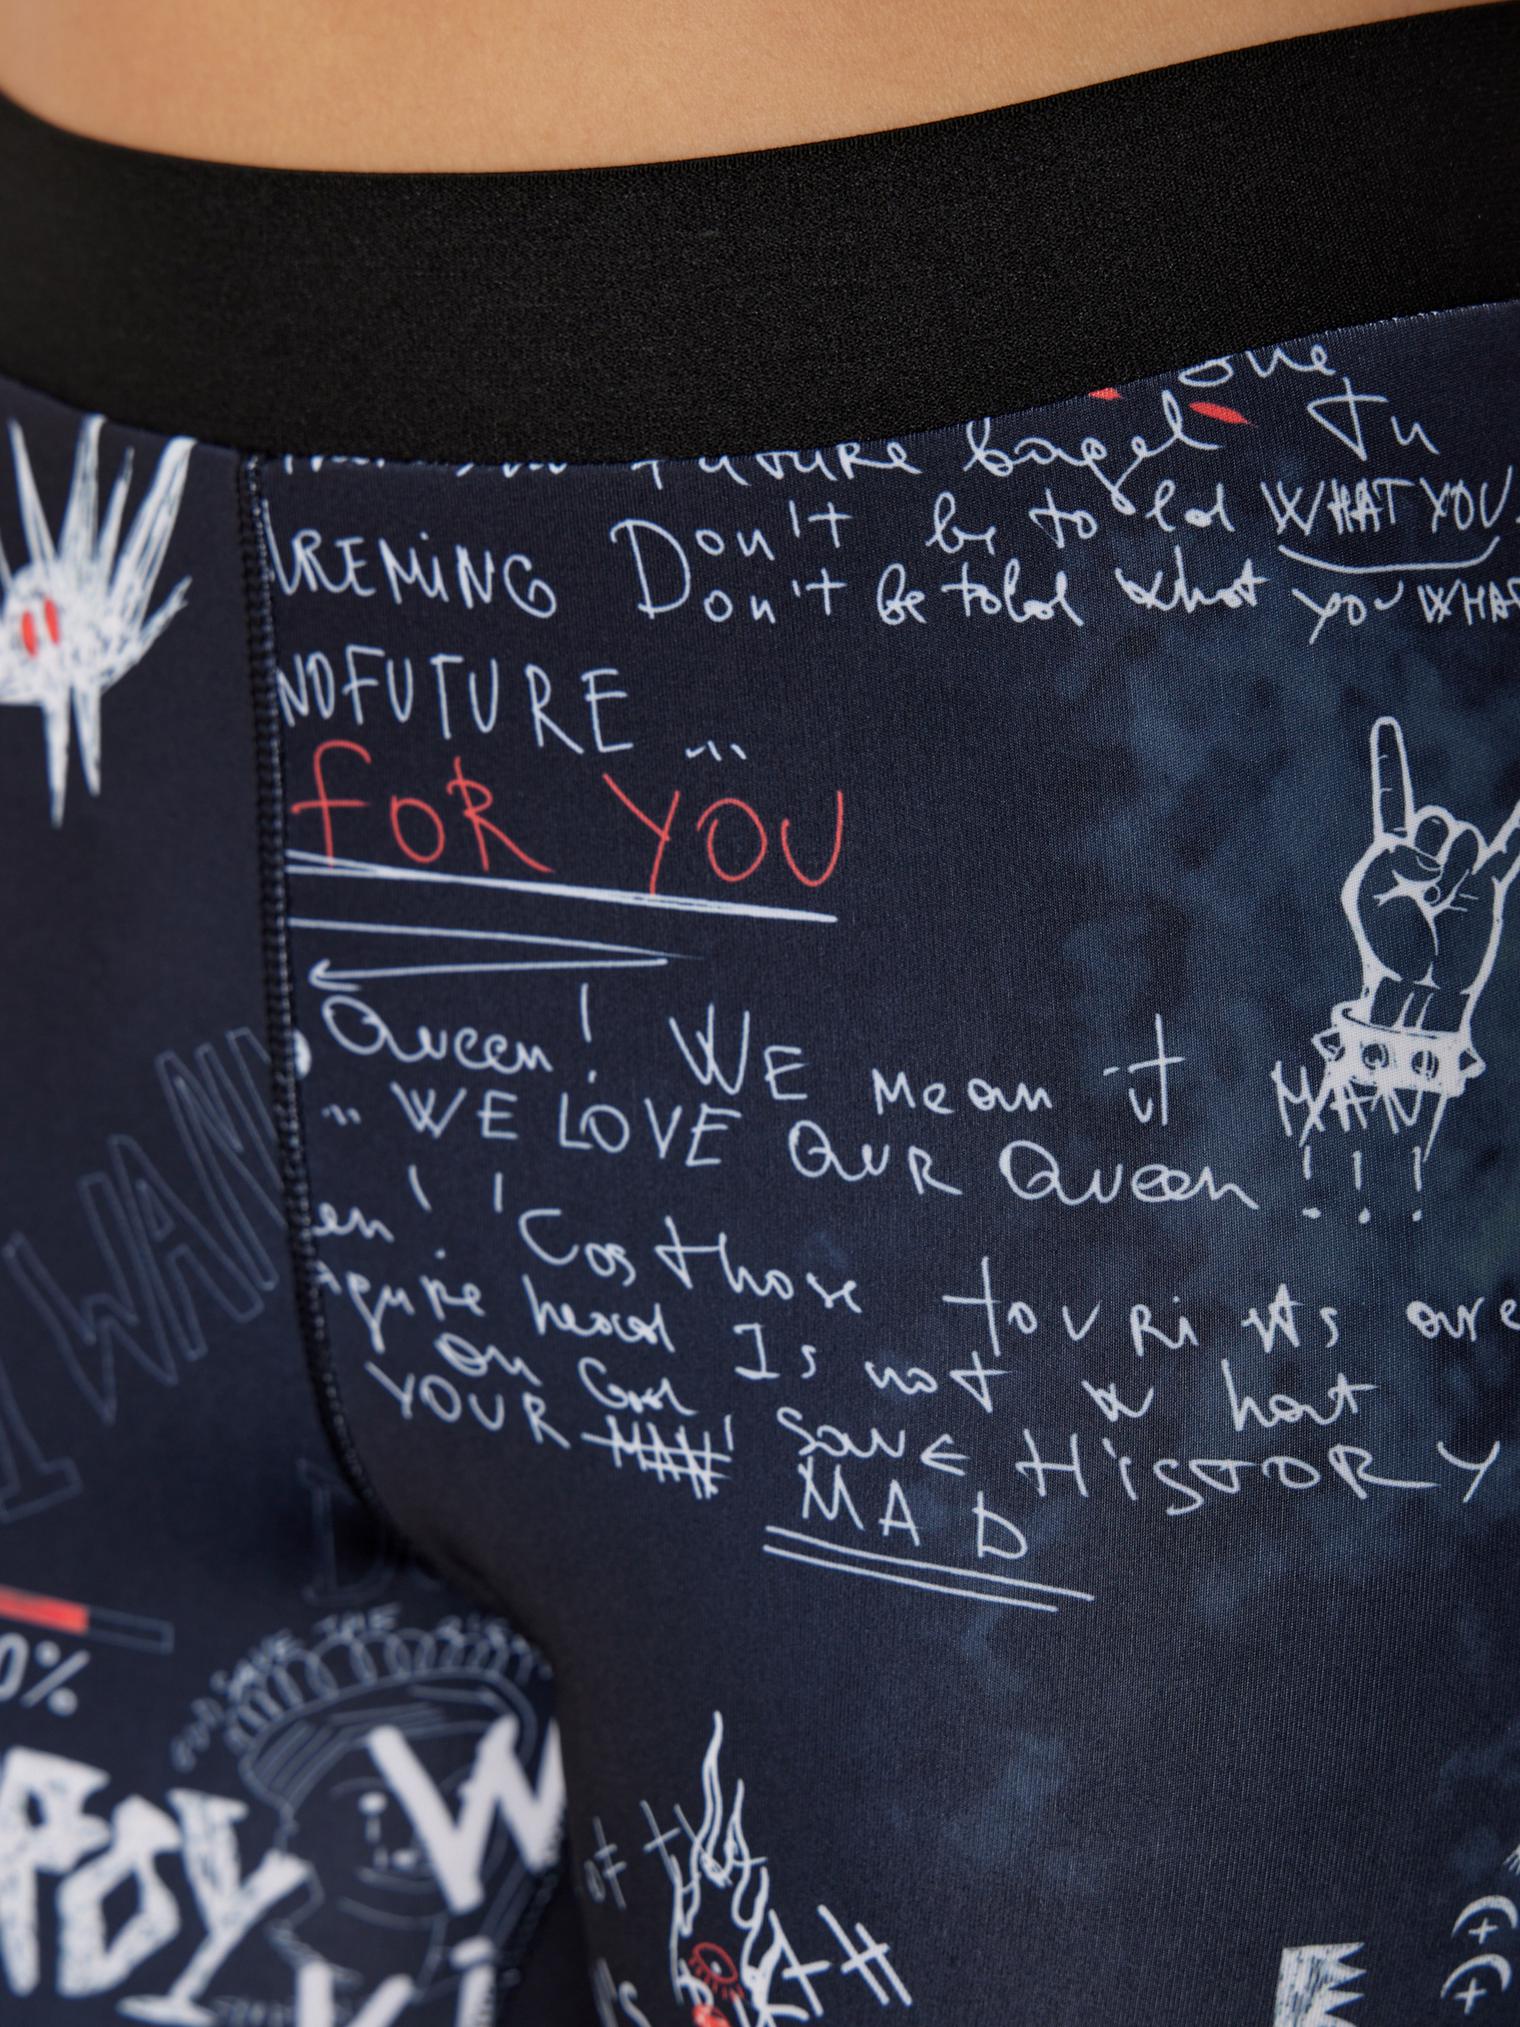 future bagel Tu
REMiNG Don't be told WHAT YOU
Don't be told what you WHA
NO FUTURE ...
FOR YOU
Queen! WE mean it MAN
... WE LOVE OUR Queen!!!
en! 'Cos those touRists are
head Is not what
On God SavE HiSTORY
YOUR MAN! MAD
I WAN
0%
SAVE THE
W
of